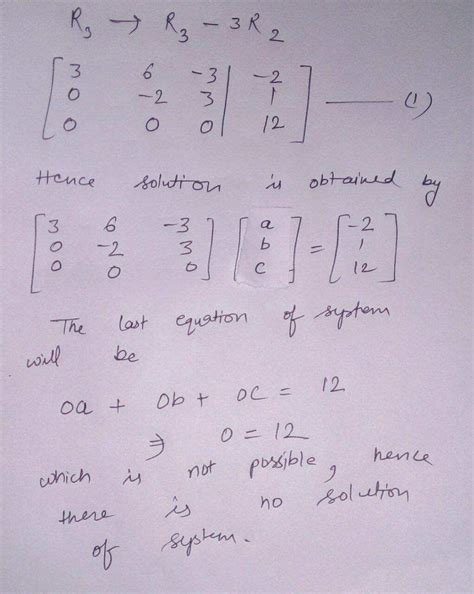 R₃ → R₃ - 3R₂
[3 6 -3 | -2]
[0 -2 3 | 1] —— (1)
[0 0 0 | 12]
Hence solution is obtained by
[3 6 -3] [a] = [-2]
[0 -2 3] [b] [1]
[0 0 0] [c] [12]
The last equation of system
will be
0a + 0b + 0c = 12
⇒ 0 = 12
which is not possible, hence
there is no solution
of system.